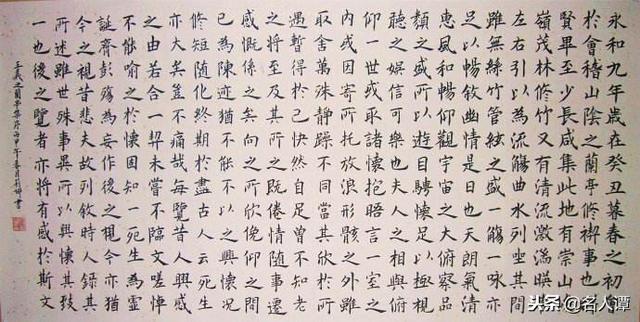 永和九年歲在癸丑暮春之初會
於會稽山陰之蘭亭修禊事也羣
賢畢至少長咸集此地有崇山峻
嶺茂林修竹又有清流激湍暎帶
左右引以為流觴曲水列坐其次
雖無絲竹管絃之盛一觴一咏亦
足以暢敘幽情是日也天朗氣清
惠風和暢仰觀宇宙之大俯察品
類之盛所以遊目騁懷足以極視
聽之娛信可樂也夫人之相與俯
仰一世或取諸懷抱晤言一室之
內或因寄所托放浪形骸之外雖
取舍萬殊靜躁不同當其欣於所
遇暫得於己快然自足曾不知老
之將至及其所之既倦情隨事遷
感慨係之矣向之所欣俛仰之間
已為陳迹猶不能不以之興懷況
修短隨化終期於盡古人云死生
亦大矣豈不痛哉每覽昔人興感
之由若合一契未嘗不臨文嗟悼
不能喻之於懷固知一死生為虛
誕齊彭殤為妄作後之視今亦猶
今之視昔悲夫故列敘時人錄其
所述雖世殊事異所以興懷其致
一也後之覽者亦將有感於斯文
王羲之蘭亭集序丙申年書
头条 @名人谭